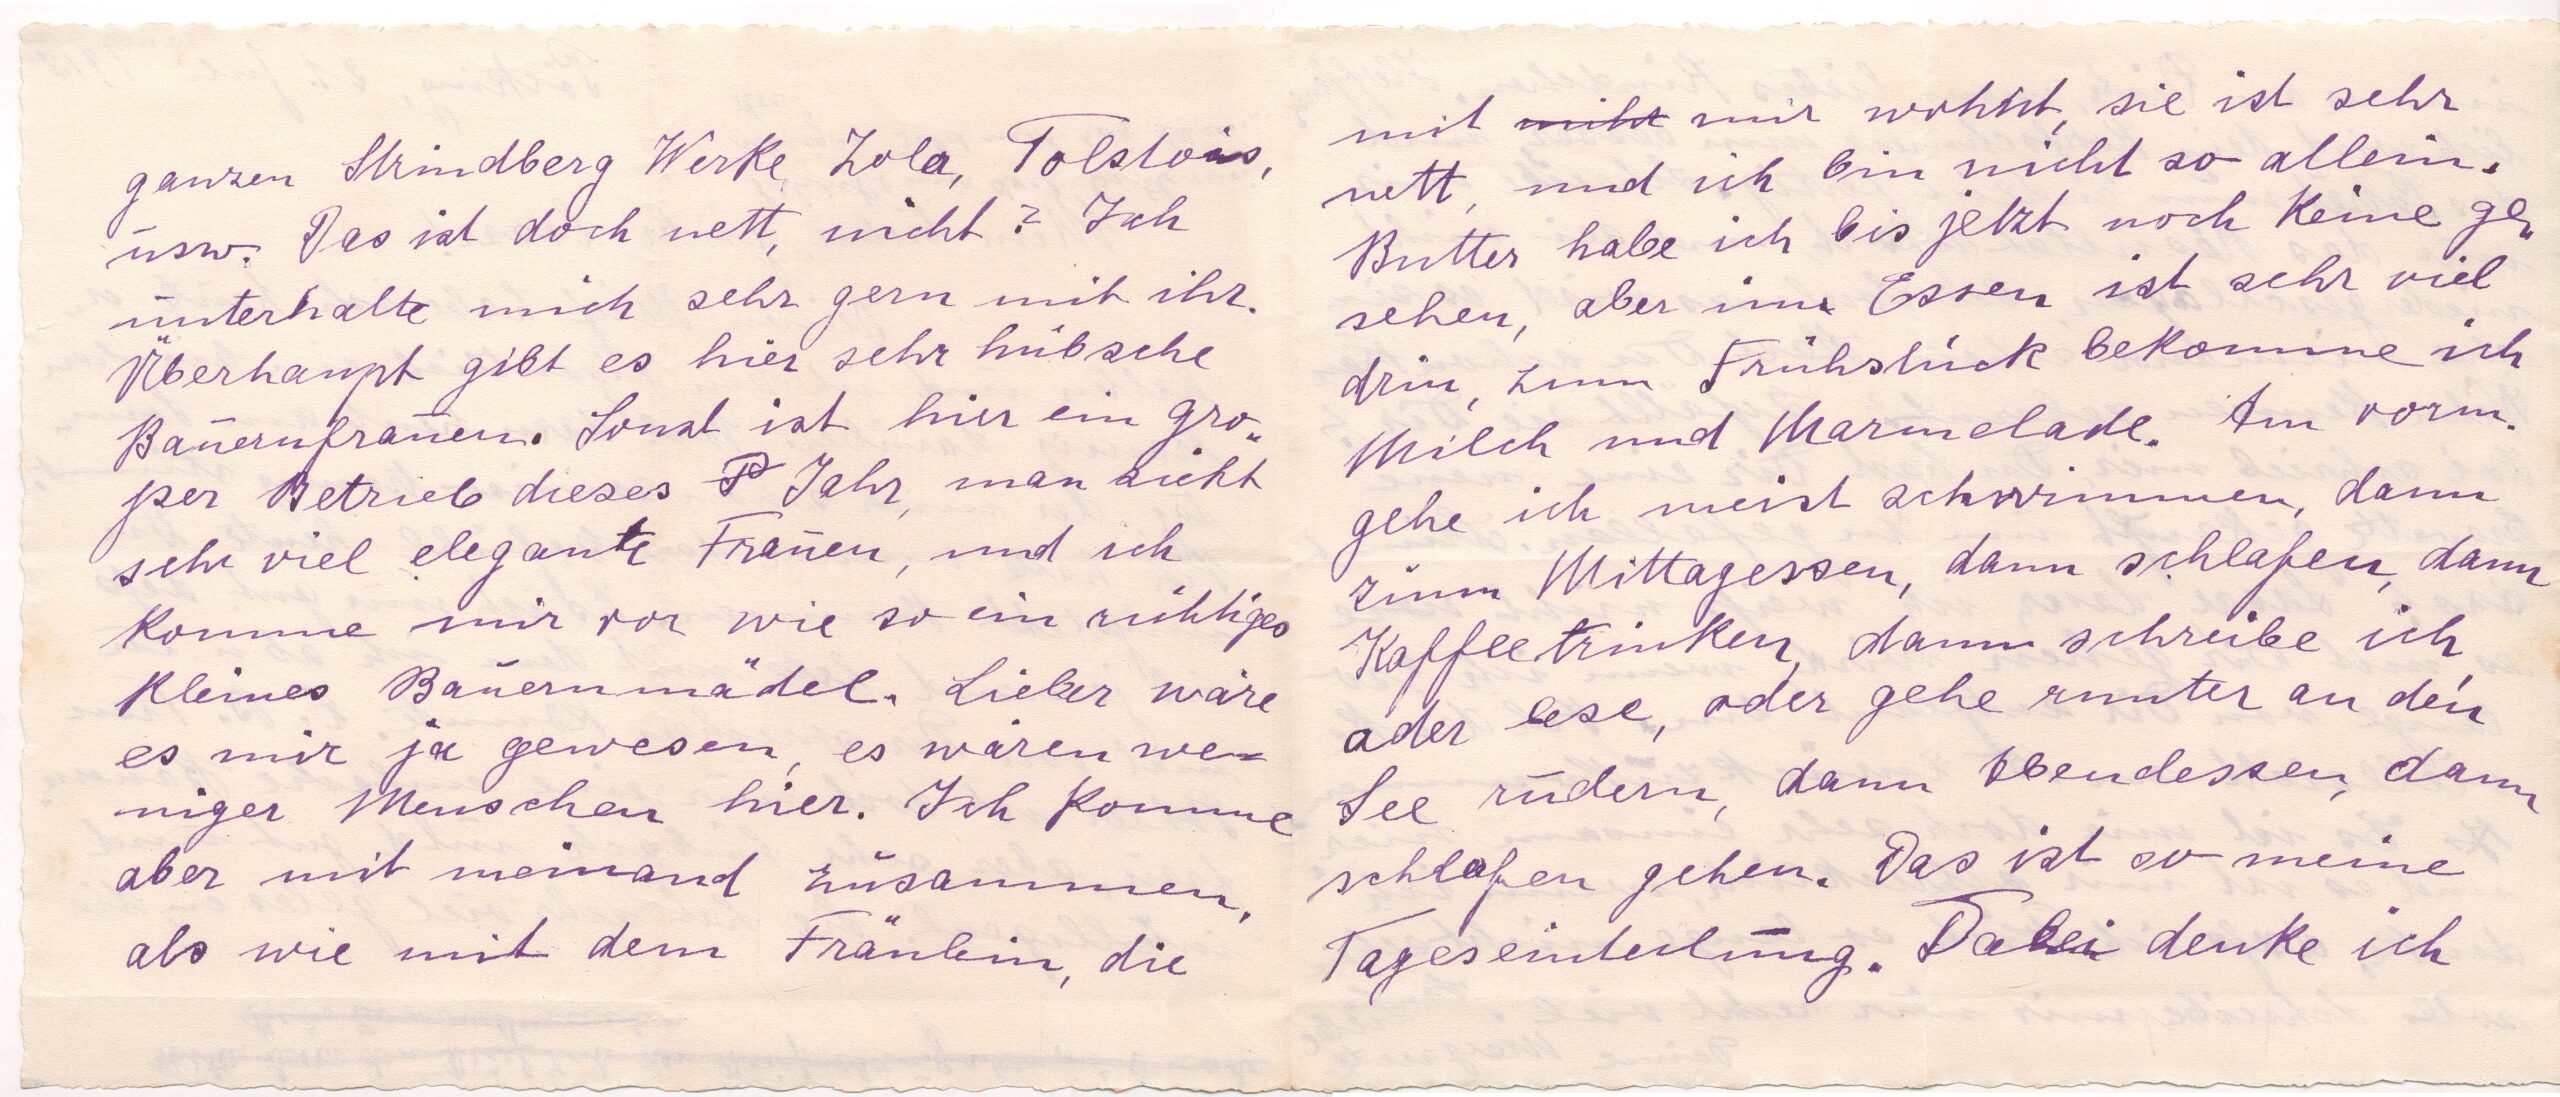 ganzen Strindberg Werke, Zola, Tolstois,
usw. Das ist doch nett, nicht? Ich
unterhalte mich sehr gern mit ihr.
Überhaupt gibt es hier sehr hübsche
Bauernfrauen. Sonst ist hier ein gro„
ßer Betrieb dieses Jahr, man sieht
sehr viel elegante Frauen, und ich
komme mir vor wie so ein richtiges
kleines Bauernmädel. Lieber wäre
es mir ja gewesen, es wären we-
niger Menschen hier. Ich komme
aber mit niemand zusammen,
als wie mit dem Fräulein, die
mit nicht mir wohnt, sie ist sehr
nett, und ich bin nicht so allein.
Butter habe ich bis jetzt noch keine ge„
sehen, aber im Essen ist sehr viel
drin, zum Frühstück bekomme ich
Milch und Marmelade. Am vorm.
gehe ich meist schwimmen, dann
zum Mittagessen, dann schlafen, dann
Kaffeetrinken, dann schreibe ich,
oder lese, oder gehe runter an den
See rudern, dann Abendessen, dann
schlafen gehen. Das ist so meine
Tageseinteilung. Dabei denke ich